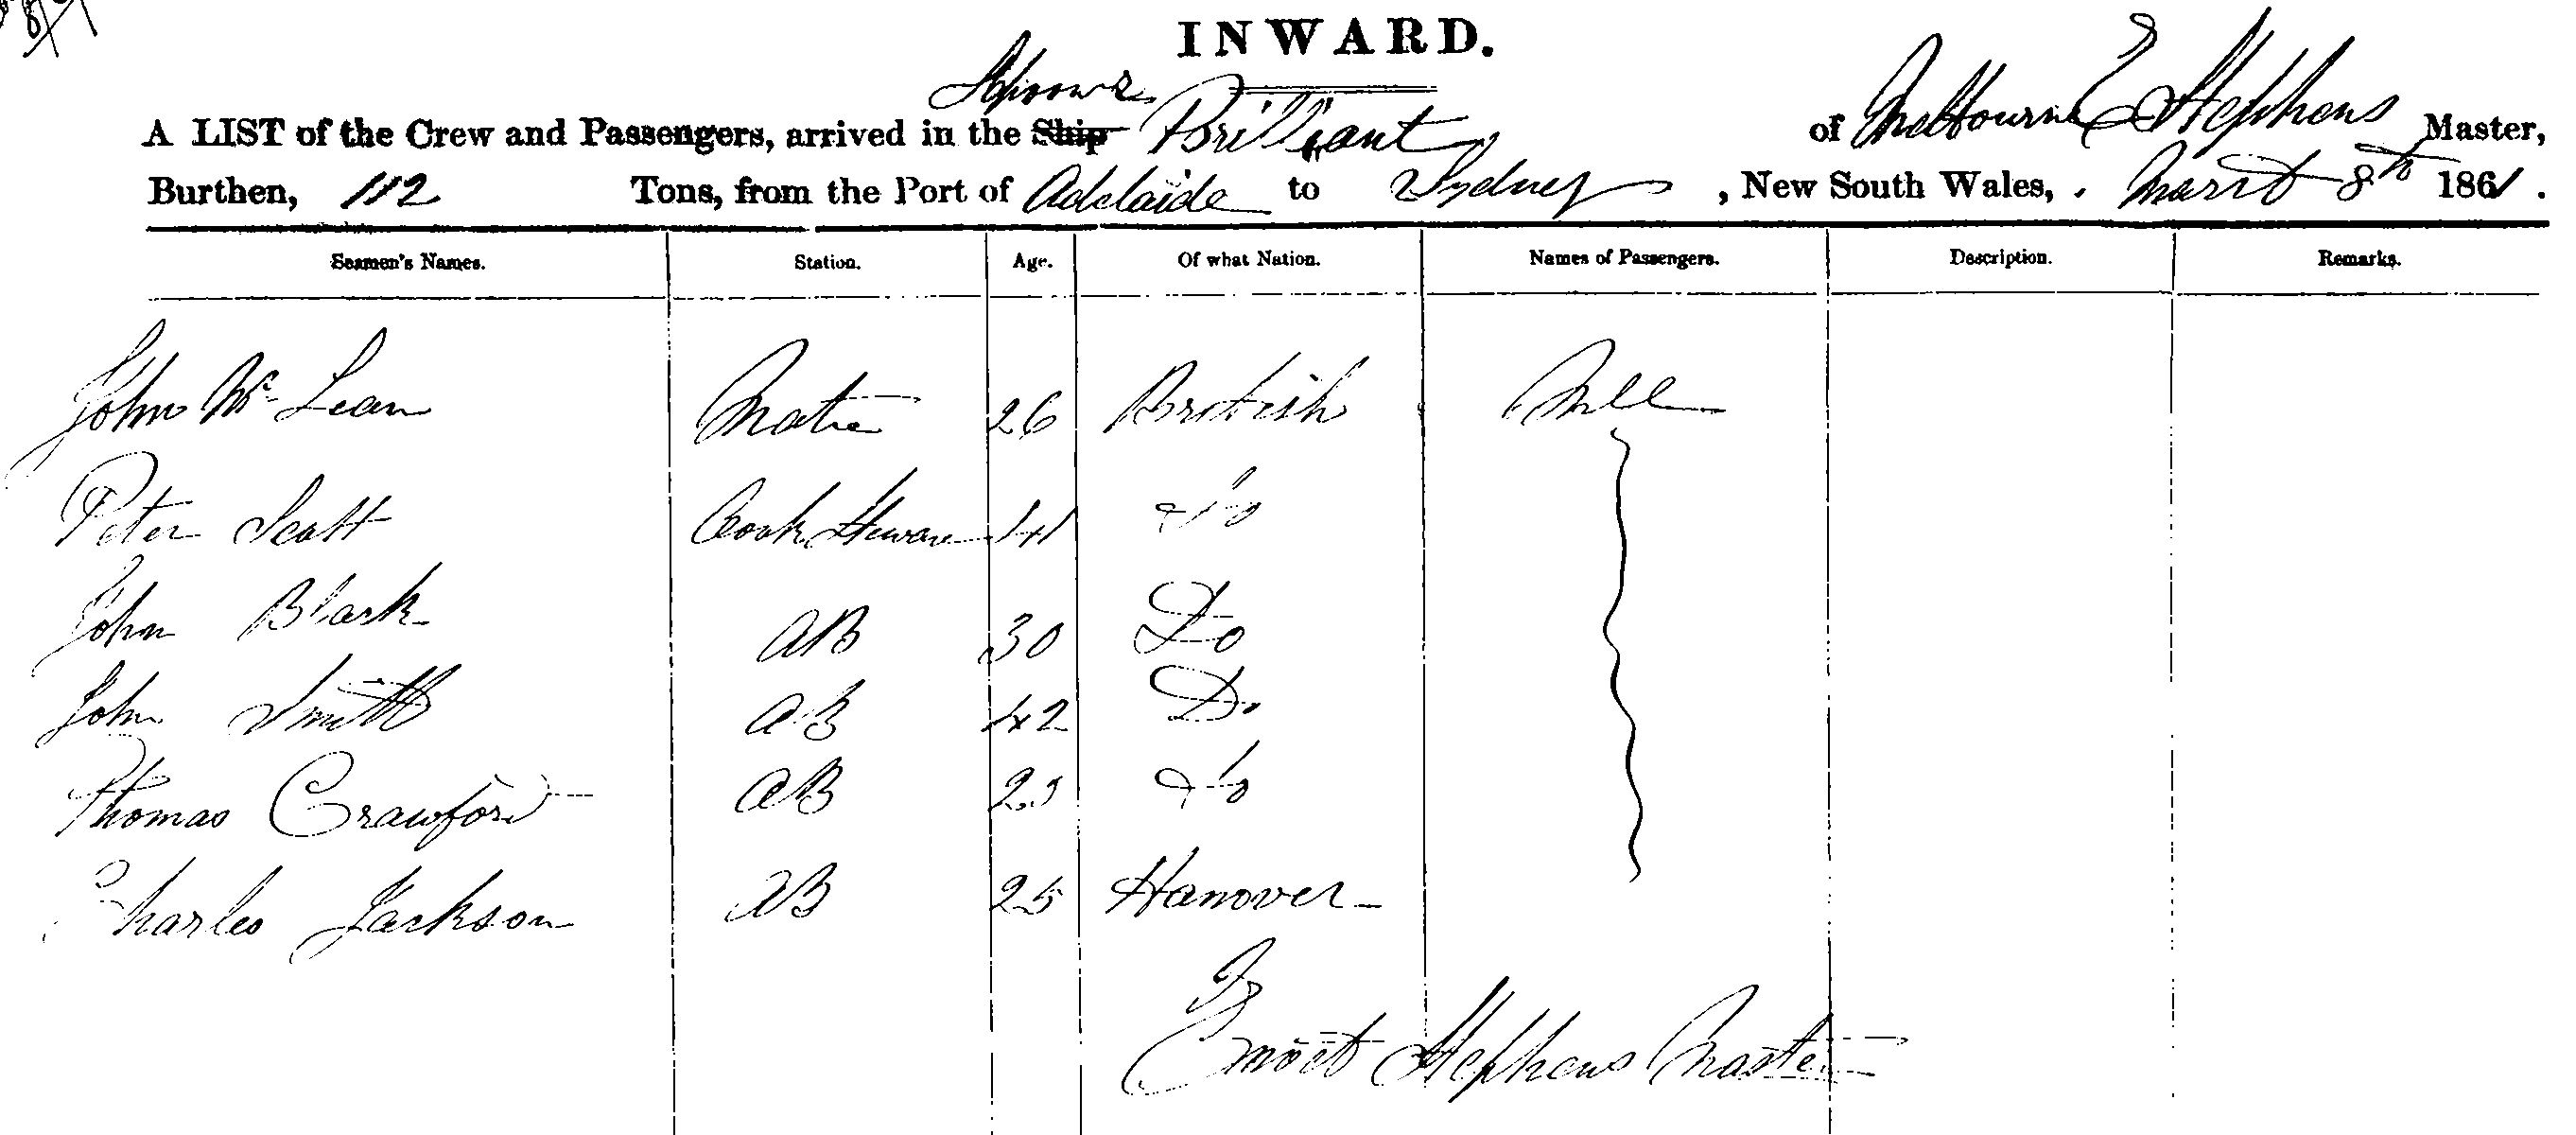 INWARD.
A LIST of the Crew and Passengers, arrived in the Ship Schooner Brilliant of Melbourne E Stephens Master,
Burthen, 112 Tons, from the Port of Adelaide to Sydney, New South Wales, 8th 1861.
Seamen's Names. Station. Age. Of what Nation. Names of Passengers. Description. Remarks.
John Mc Lean Mate 26 British Nill
Peter Scott Cook Steward 41 Do
John Black AB 30 Do
John Smith AB 42 Do
Thomas Crawford AB Do
Charles Jackson AB 25 Hanover
Stephens Master